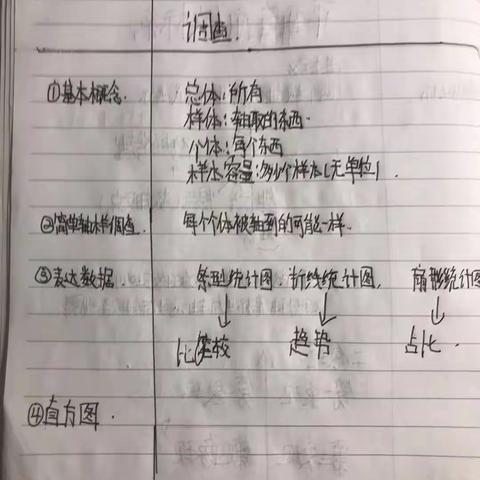 调查.
①基本概念. 总体:所有
样体:抽取的东西.
个体:每个东西
样本容量:多少个样本(无单位).
②简单抽样调查. 每个个体被抽到的可能一样.
③表达数据. 条型统计图. 折线统计图. 扇形统计图
比较 趋势 占比.
④直方图.